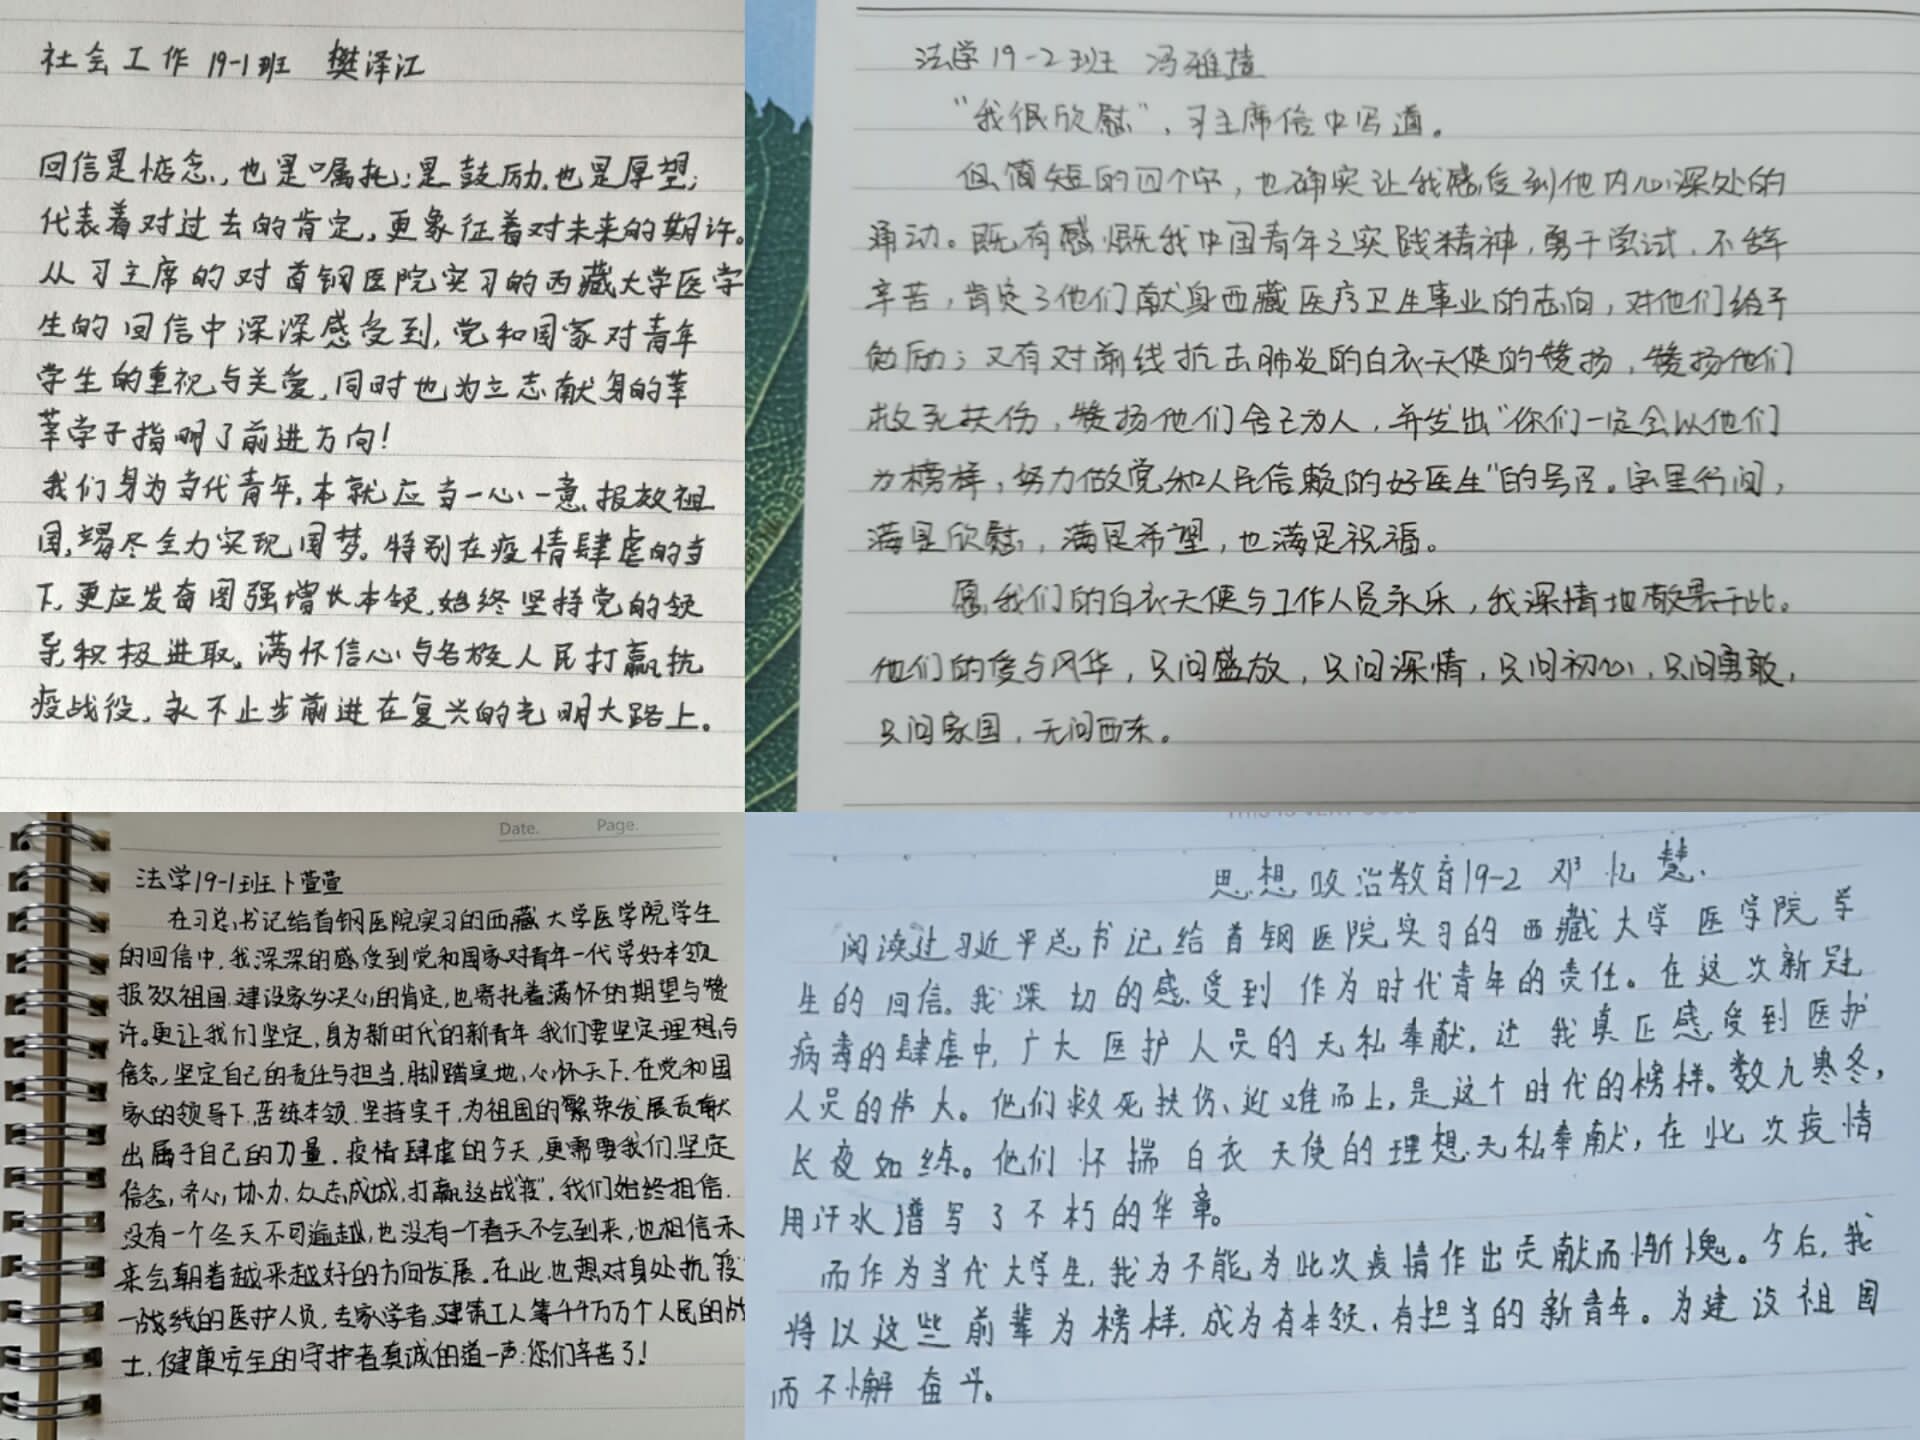 社会工作 19-1班 樊泽江
回信是惦念，也是嘱托；是鼓励，也是厚望；
代表着对过去的肯定，更象征着对未来的期许。
从习主席的对首钢医院实习的西藏大学医学
生的回信中深深感受到，党和国家对青年
学生的重视与关爱，同时也为立志献身的莘
莘学子指明了前进方向！
我们身为当代青年，本就应当一心一意，报效祖
国，竭尽全力实现国梦。特别在疫情肆虐的当
下，更应发奋图强增长本领，始终坚持党的领
导积极进取。满怀信心与各族人民打赢抗
疫战役，永不止步前进在复兴的光明大路上。
法学19-2班 冯雅萱
“我很欣慰”，习主席信中写道。
但简短的四个字，也确实让我感受到他内心深处的
涌动。既有感慨我中国青年之实践精神，勇于尝试，不辞
辛苦，肯定了他们献身西藏医疗卫生事业的志向，对他们给予
勉励；又有对前线抗击肺炎的白衣天使的赞扬，赞扬他们
救死扶伤，赞扬他们舍己为人，并发出“你们一定会以他们
为榜样，努力做党和人民信赖的好医生”的号召。字里行间，
满是欣慰，满是希望，也满是祝福。
愿我们的白衣天使与工作人员永乐，我深情地敬畏于此。
他们的爱与风华，只问盛放，只问深情，只问初心，只问勇敢，
只问家国，无问西东。
Date. Page.
法学19-1班 卜萱萱
在习总书记给首钢医院实习的西藏大学医学院学生
的回信中，我深深的感受到党和国家对青年一代学好本领
报效祖国，建设家乡决心的肯定，也寄托着满怀的期望与赞
许。更让我们坚定，身为新时代的新青年 我们要坚定理想与
信念，坚定自己的责任与担当，脚踏实地，心怀天下，在党和国
家的领导下，苦练本领，坚持实干，为祖国的繁荣发展贡献
出属于自己的力量。疫情肆虐的今天，更需要我们坚定
信念，齐心协力，众志成城，打赢这战“疫”。我们始终相信，
没有一个冬天不可逾越，也没有一个春天不会到来，也相信未
来会朝着越来越好的方向发展。在此，也想对身处抗疫
一战线的医护人员，专家学者，建筑工人等千千万万个人民的战
士，健康安全的守护者真诚的道一声：您们辛苦了！
思想政治教育19-2 邓忆慧
阅读过习近平总书记给首钢医院实习的西藏大学医学院学
生的回信。我深切的感受到作为时代青年的责任。在这次新冠
病毒的肆虐中，广大医护人员的无私奉献，让我真正感受到医护
人员的伟大。他们救死扶伤、迎难而上，是这个时代的榜样。数九寒冬，
长夜如练。他们怀揣白衣天使的理想，无私奉献，在此次疫情
用汗水谱写了不朽的华章。
而作为当代大学生，我为不能为此次疫情作出贡献而惭愧。今后，我
将以这些前辈为榜样，成为有本领、有担当的新青年。为建设祖国
而不懈奋斗。